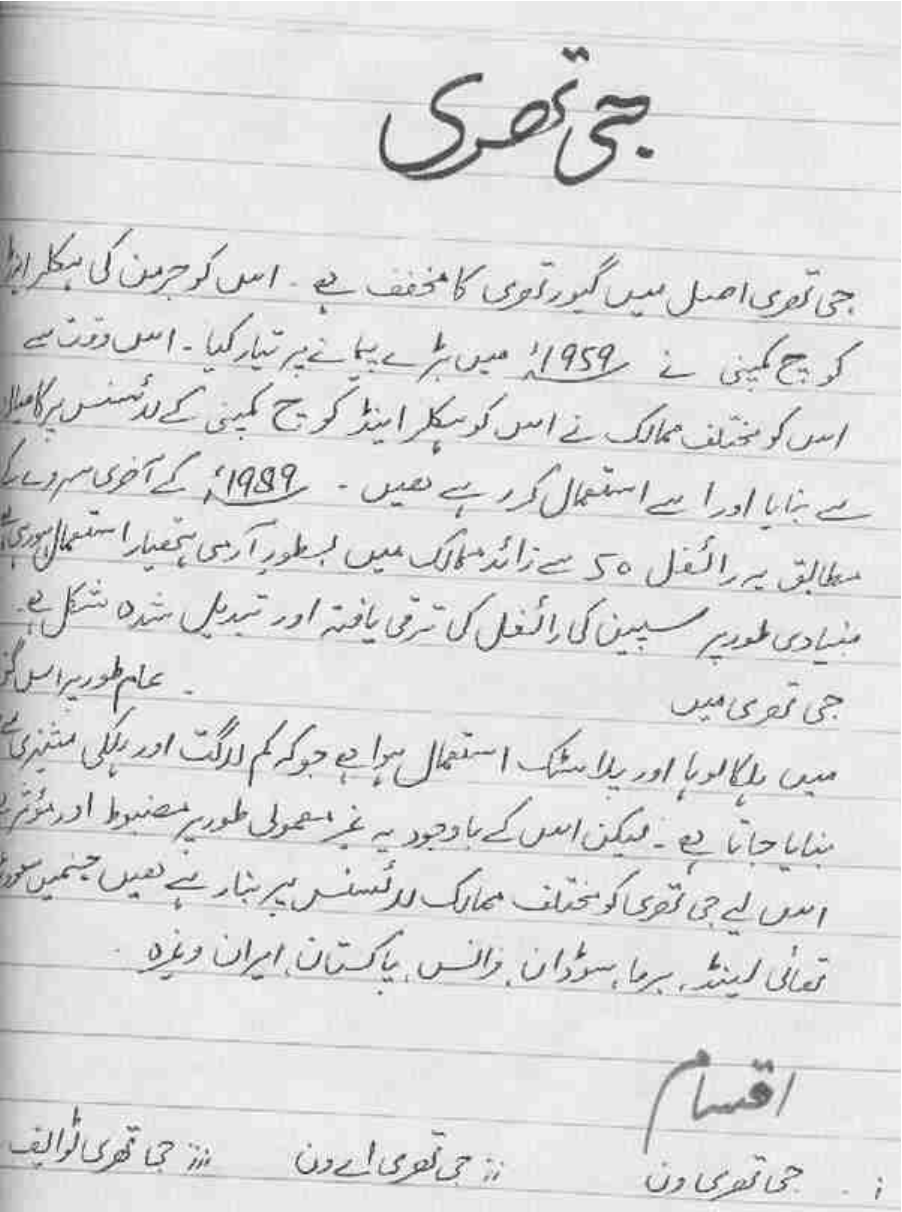 جی تھری
جی تھری اصل میں گیور تھری کا مخفف ہے ۔ اس کو جرمن کی ہیکلر اینڈ
کوچ کمپنی نے 1959ء میں بڑے پیمانے پر تیار کیا ۔ اس وقت سے
اس کو مختلف ممالک نے اس کو ہیکلر اینڈ کوچ کمپنی کے لائسنس پر
سے بنایا اور اسے استعمال کر رہے ھیں ۔ 1989ء کے آخری سروے کے
مطابق یہ رائفل 50 سے زائد ممالک میں بطور آرمی ہتھیار استعمال ہورہی ہے
بنیادی طور پر سپین کی رائفل کی ترقی یافتہ اور تبدیل شدہ شکل ہے ۔
جی تھری میں ۔ عام طور پر اس
میں ہلکا لوہا اور پلاسٹک استعمال ہوا ہے جو کہ کم لاگت اور ہلکی مشینری سے
بنایا جاتا ہے ۔ لیکن اس کے باوجود یہ غیر معمولی طور پر مضبوط اور مؤثر ہے
اس لیے جی تھری کو مختلف ممالک لائسنس پر بنا رہے ھیں جنمیں
تھائی لینڈ، برما، سوڈان، فرانس، پاکستان، ایران وغیرہ ۔
اقسام
i . جی تھری ون ii جی تھری اے ون iii جی تھری ٹو ایف